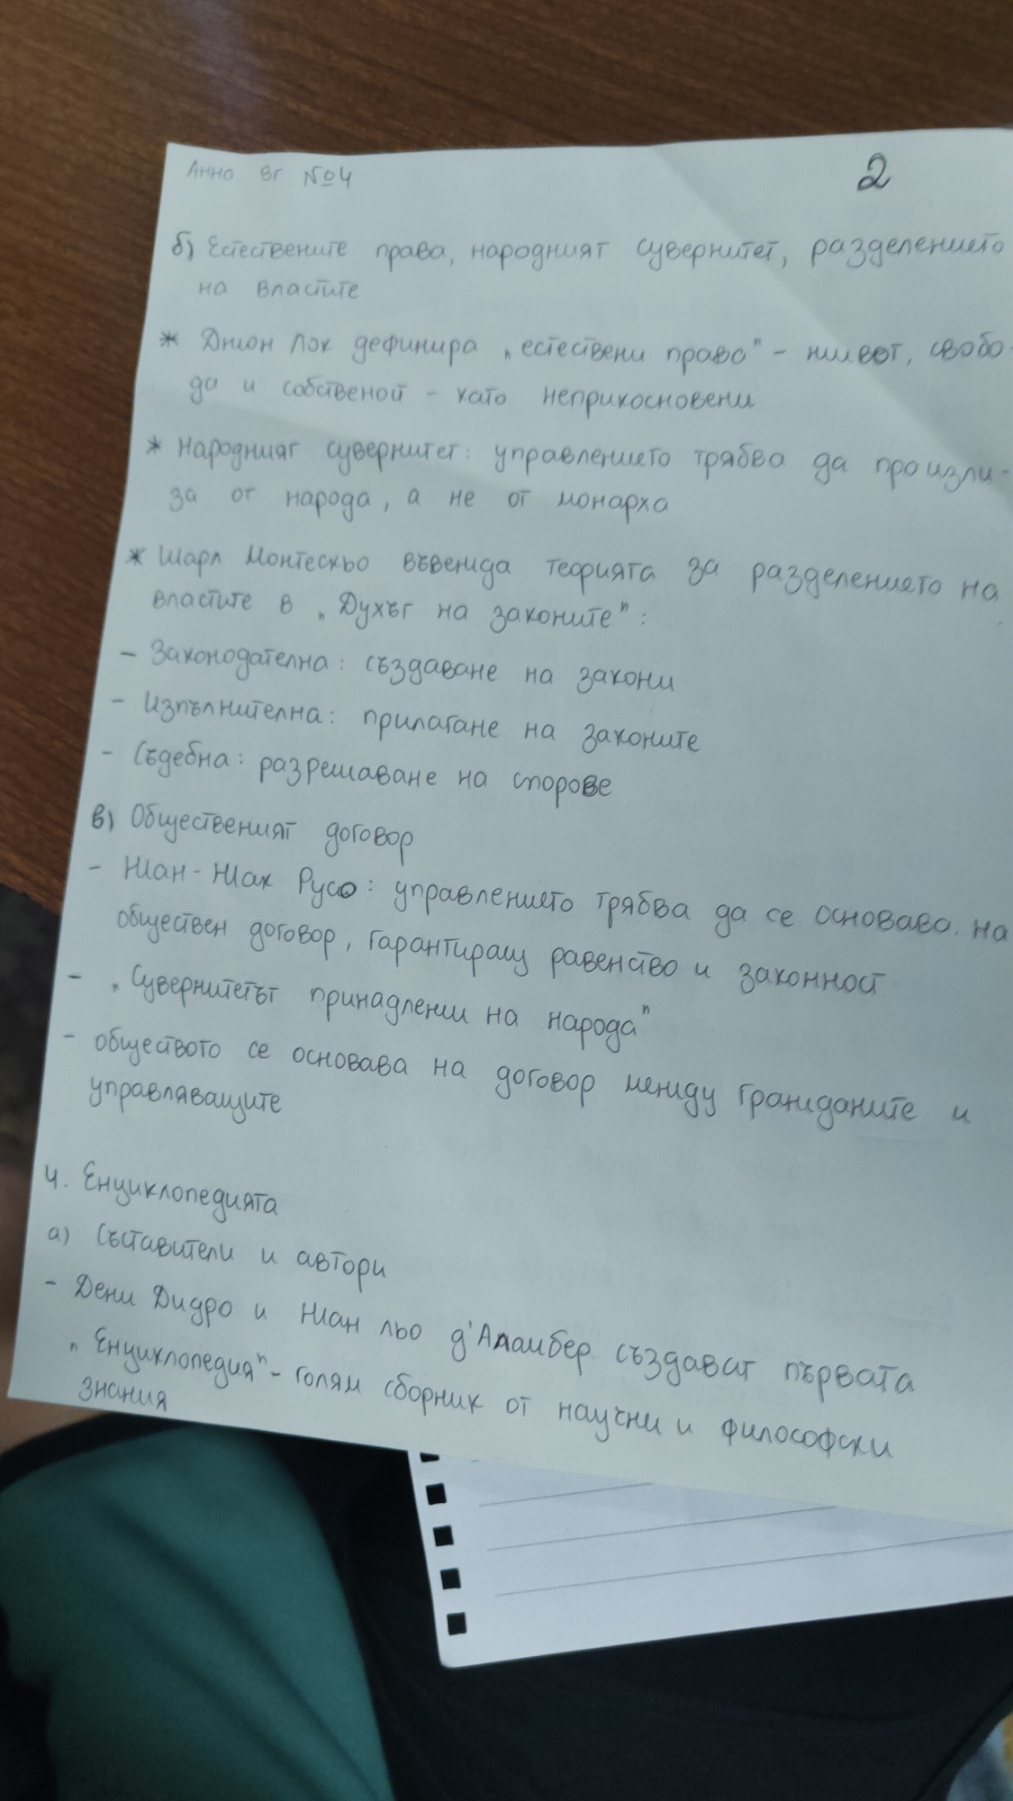 Анна 8г №4
2
б) Естествените права, народният сувернитет, разделението
на властите
* Джон Лок дефинира „естествени права" - живот, свобо-
да и собственой - като неприкосновени
* Народният сувернитет: управлението трябва да произли-
за от народа, а не от монарха
* Шарл Монтескьо въвежда теорията за разделението на
властите в „Духът на законите":
- Законодателна: създаване на закони
- Изпълнителна: прилагане на законите
- Съдебна: разрешаване на спорове
в) Общественият договор
- Жан-Жак Русо: управлението трябва да се основава на
обществен договор, гарантиращ равенство и законност
- „Сувернитетът принадлежи на народа"
- обществото се основава на договор между гражданите и
управляващите
4. Енциклопедията
а) Съставители и автори
- Дени Дидро и Жан льо д'Аламбер създават първата
„Енциклопедия" - голям сборник от научни и философски
знания